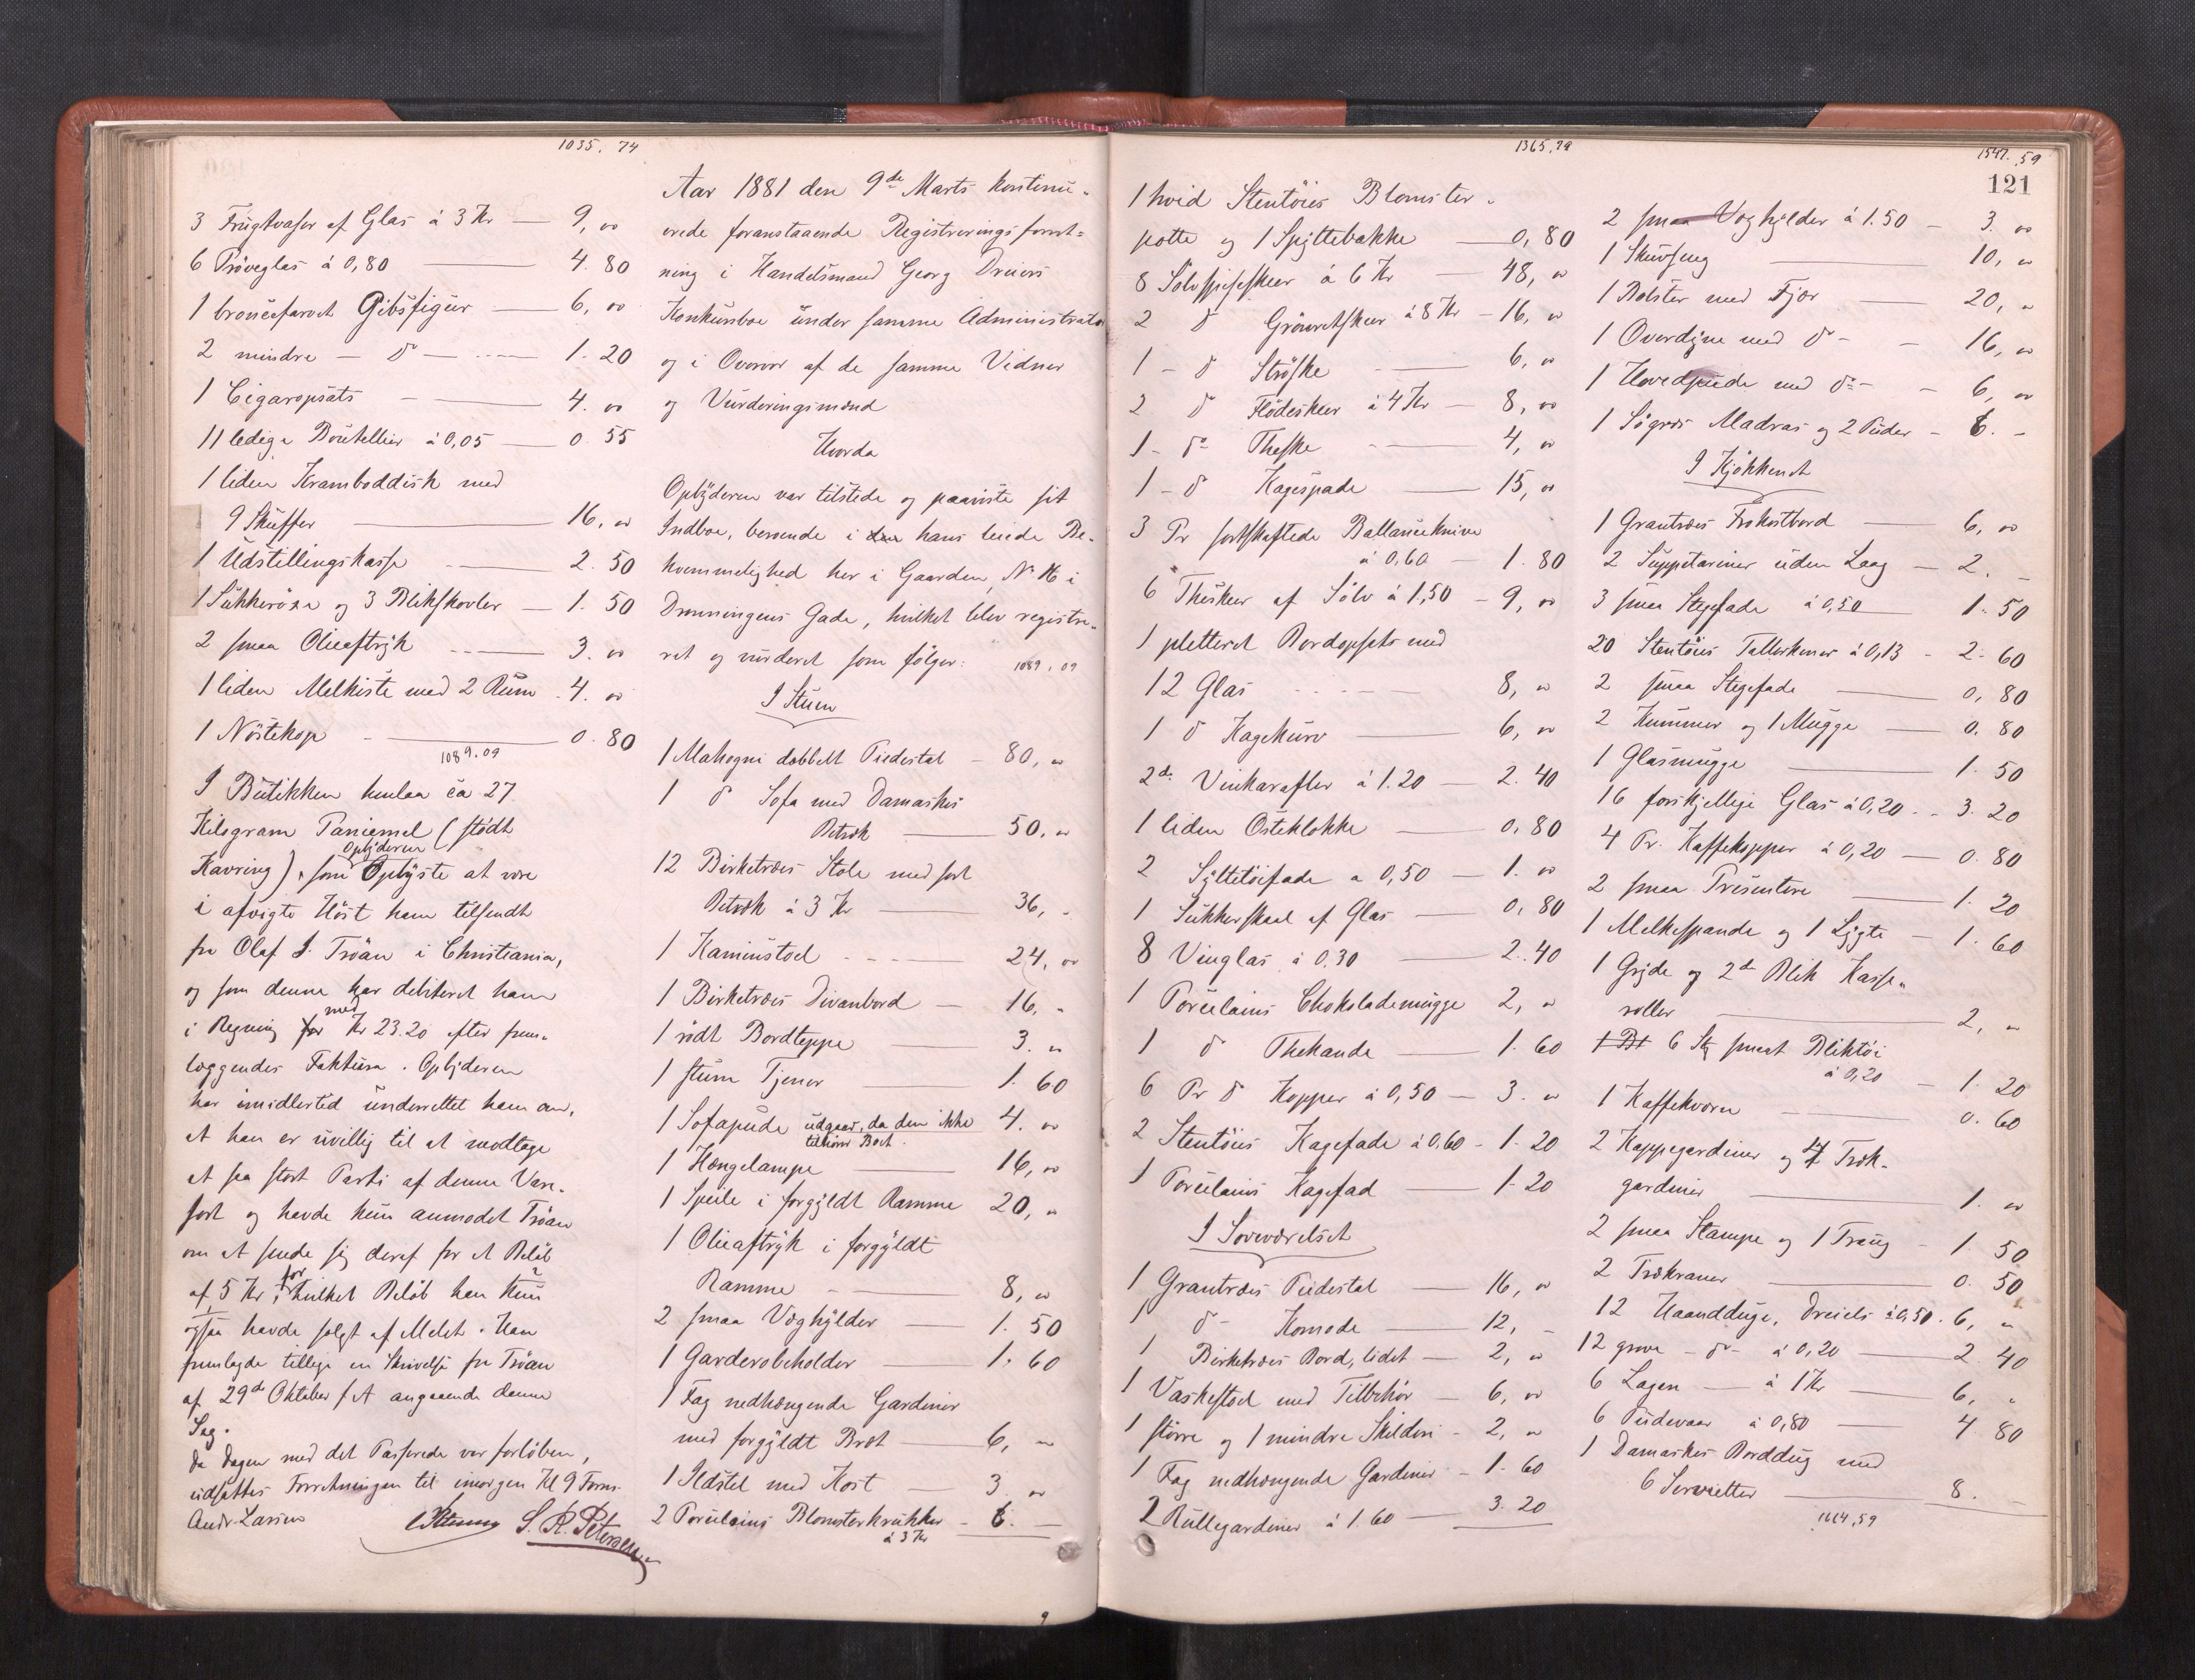 1035. 74
3 Frugtvaser af Glas á 3 Kr — 9, 00
6 Prøveglas á 0,80 — 4. 80
1 broncefarvet Gibsfigur — 6, 00
2 mindre — do — 1. 20
1 Cigaropsats — 4. 00
11 ledige Boutellier á 0,05 — 0 55
1 liden Kramboddisk med
9 Skuffer — 16, 00
1 Udstillingskasse — 2. 50
1 Sukkerøxe og 3 Blikskovler — 1. 50
2 smaa Olieaftryk — 3. 00
1 liden Melkiste med 2 Rum 4. 00
1 Nøstekop — 0. 80
1089.09
I Butikken henlaa ca 27
Kilogram Paniemel (stødt
Kavring), som Opbyderen Oplyste at være
i afvigte Høst ham tilsendt
fra Olaf I. Trøan i Christiania,
og som denne har debiteret ham
i Regning for med Kr 23.20 efter frem-
læggendes Faktura. Opbyderen
har imidlertid underrettet ham om,
at han er uvillig til at modtage
et saa stort Parti af denne Vare-
sort og havde kun anmodet Trøan
om at sende sig deraf for et Beløb
af 5 Kr, for hvilket Beløb han kun
ogsaa havde solgt af Melet. Han
fremlagde tillige en Skrivelse fra Trøan
af 29de Oktober f A angaaende denne
Sag.
Da Dagen med det Passerede var forløben,
udsattes Forretningen til imorgen Kl 9 Form.
Andr. Larsen S. R. Petersen
Aar 1881 den 9de Marts kontinu-
erede foranstaaende Registreringsforret-
ning i Handelsmand Georg Dreiers
Konkursbo under samme Administrator
og i Overvær af de samme Vidner
og Vurderingsmænd
Hvorda
Opbyderen var tilstede og paaviste sit
Indbo, beroende i den hans leiede Be-
kvemmelighed her i Gaarden, No 16 i
Dronningens Gade, hvilket blev registre-
ret og vurderet som følger: 1089,09
I Stuen
1 Mahogni dobbelt Piedestal — 80, 00
1 do Sofa med Damaskes
Betræk — 50. 00
12 Birketræes Stole med sort
Betræk á 3 Kr — 36, -
1 Kaminstol — 24, 00
1 Birketræes Divanbord — 16, -
1 rødt Bordteppe — 3. 00
1 stum Tjener — 1. 60
1 Sofapude udgaar, da den ikke 4. 00
tilhører Boet.
1 Hængelampe — 16, 00
1 Speile i forgyldt Ramme 20, 00
1 Olieaftryk i forgyldt
Ramme — 8, 00
2 smaa Væghylder — 1. 50
1 Garderobeholder — 1. 60
1 Fag nedhængende Gardiner
med forgyldt Bræt — 6, 00
1 Ildstel med Kost — 3. 00
2 Porcelains Blomsterkrukker — 6. —
á 3 Kr
9
1365,79
1 hvid Stentøies Blomster-
potte og 1 Spyttebakke — 0, 80
8 Sølvspiseskeer á 6 Kr — 48, 00
2 do Grønretskeer á 8 Kr — 16, 00
1 - do Strøske — 6, 00
2 do Flødeskeer á 4 Kr — 8, 00
1 - do Theske — 4, 00
1 - do Kagespade — 15, 00
3 Pr sortskaftede Ballanceknive
á 0,60 — 1. 80
6 Theskeer af Sølv á 1,50 — 9, 00
1 pletteret Bordopsats med
12 Glas — 8, 00
1 do Kagekurv — 6, 00
2 do Vinkarafler á 1.20 — 2. 40
1 liden Osteklokke — 0, 80
2 Syltetøifade a 0,50 — 1. 00
1 Sukkerskaal af Glas — 0, 80
8 Vinglas á 0.30 — 2. 40
1 Porcelains Chokolademugge 2, 00
1 do Thekande — 1. 60
6 Pr do Kopper á 0,50 — 3. 00
2 Stentøies Kagefade á 0.60 - 1. 20
1 Porcelains Kagefad — 1. 20
I Soveværelset
1 Grantræes Piedestal — 16, 00
1 do- Komode — 12, -
1 Birketræes Bord, lidet — 2, 00
1 Vaskestol med Tilbehør — 6, 00
1 større og 1 mindre Skilderi - 2, 00
1 Fag nedhængende Gardiner - 1. 60
2 Rullegardiner á 1.60 — 3. 20
1547.59
121
2 smaa Væghylder á 1.50 — 3. 00
1 Skuvseng — 10, 00
1 Bolster med Fjær — 20, 00
1 Overdyne med do - — 16, 00
1 Hovedpude med do - — 6, 00
1 Søgræs Madras og 2 Puder — 6. -
I Kjøkkenet
1 Grantræes Frokostbord — 6, 00
2 Suppetariner uden Laag — 2. -
3 smaa Stegefade á 0,50 — 1. 50
20 Stentøies Tallerkener á 0,13 - 2. 60
2 smaa Stegefade — 0, 80
2 Kummer og 1 Mugge — 0. 80
1 Glasmugge — 1. 50
16 forskjellige Glas á 0,20 — 3. 20
4 Pr. Kaffekopper á 0,20 — 0. 80
2 smaa Presentere — 1. 20
1 Melkespande og 1 Lygte — 1. 60
1 Gryde og 2 do Blik Kasse-
roller — 2, 00
6 St smaat Bliktøi
á 0,20 — 1. 20
1 Kaffekværn — 0. 60
2 Kappegardiner og 4 Træk-
gardiner — 1. 00
2 smaa Stampe og 1 Traug — 1. 50
2 Trækraner — 0. 50
12 Haandduge, Dreiels á 0,50. 6, 00
12 grove - do - á 0,20 — 2. 40
6 Lagen — á 1 Kr — 6, -
6 Pudevaar á 0,80 — 4. 80
1 Damaskes Borddug med
6 Servietter — 8. —
1664,59